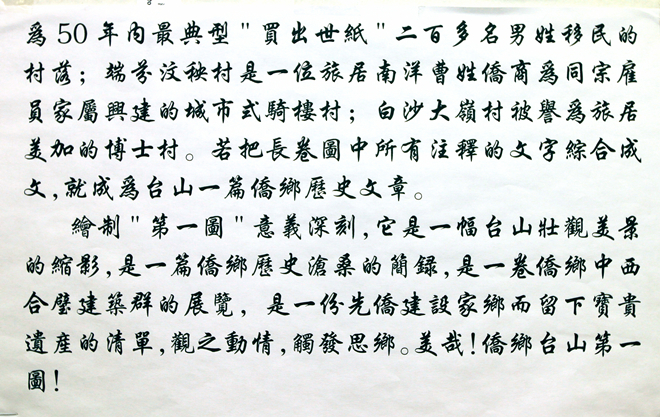 爲50年内最典型"買出世紙"二百多名男姓移民的
村落；端芬汶秧村是一位旅居南洋曹姓僑商爲同宗雇
員家屬興建的城市式騎樓村；白沙大嶺村被譽爲旅居
美加的博士村。若把長卷圖中所有注釋的文字綜合成
文,就成爲台山一篇僑鄉歷史文章。
繪制"第一圖"意義深刻,它是一幅台山壯觀美景
的縮影,是一篇僑鄉歷史滄桑的簡録,是一卷僑鄉中西
合璧建築群的展覽，是一份先僑建設家鄉而留下寶貴
遺産的清單,觀之動情,觸發思鄉。美哉!僑鄉台山第一
圖!